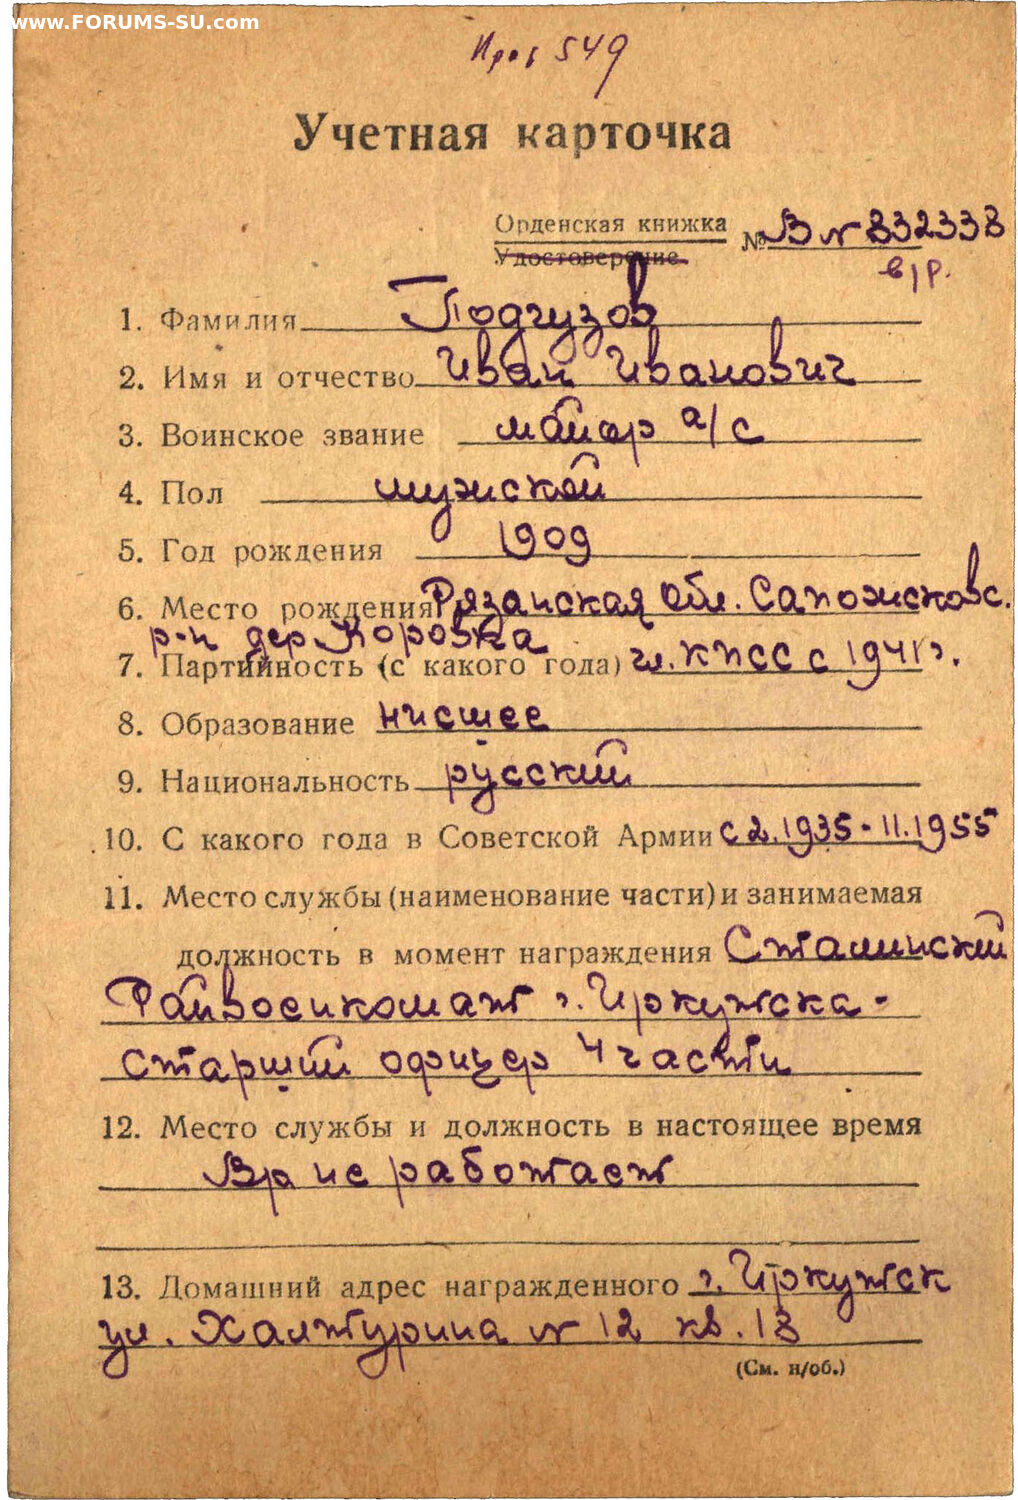 www.FORUMS-SU.com
549
Учетная карточка
Орденская книжка
Удостоверение
№ В № 832338
в/р.
1. Фамилия Подгузов
2. Имя и отчество Иван Иванович
3. Воинское звание майор а/с
4. Пол мужской
5. Год рождения 1909
6. Место рождения Рязанская обл. Сапожковс.
р-н дер Коровка
7. Партийность (с какого года) чл. КПСС с 1941 г.
8. Образование низшее
9. Национальность русский
10. С какого года в Советской Армии с 2.1935 - 11.1955
11. Место службы (наименование части) и занимаемая
должность в момент награждения Сталинский
Райвоенкомат г. Иркутска -
старший офицер 4 части
12. Место службы и должность в настоящее время
Вр не работает
13. Домашний адрес награжденного г. Иркутск
ул. Халтурина № 12 кв. 13
(См. н/об.)